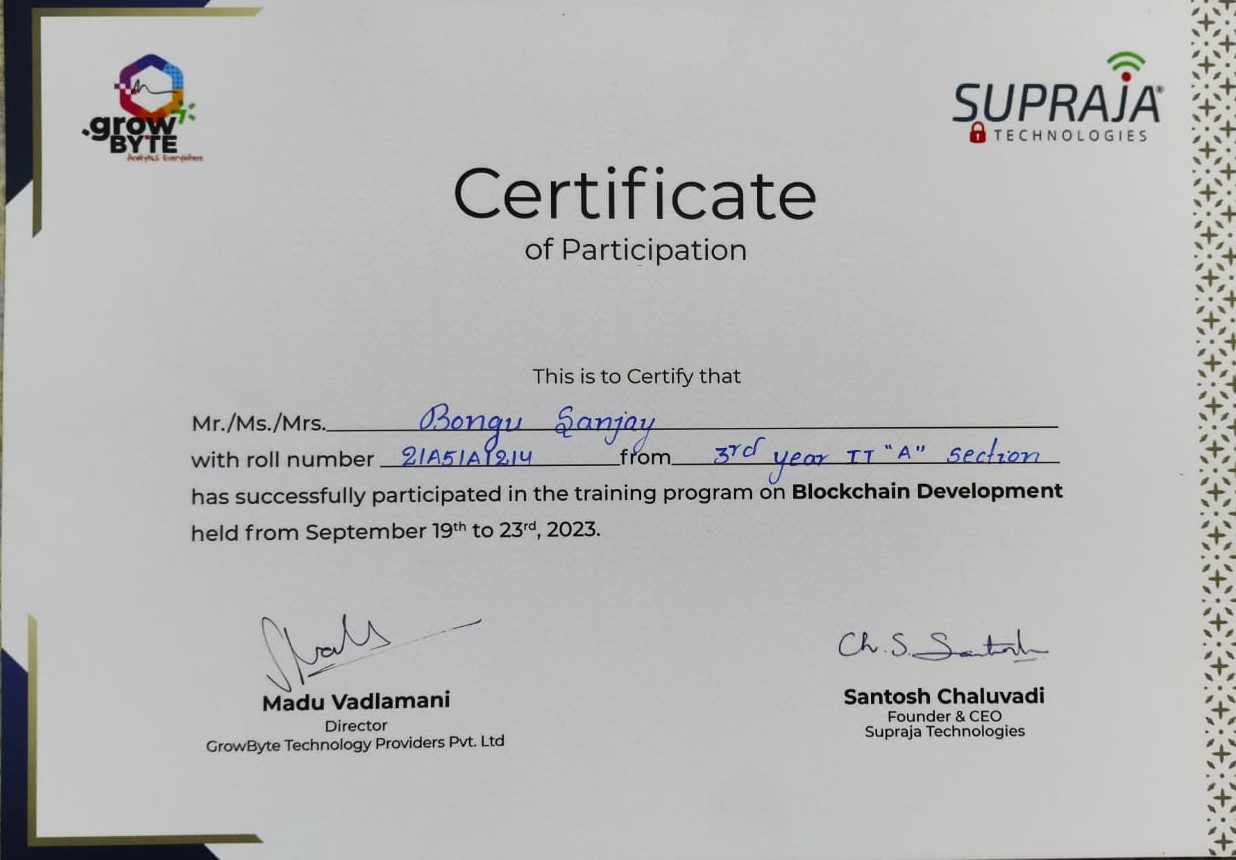 .grow
BYTE
Analytics Everywhere
SUPRAJA®
TECHNOLOGIES
Certificate
of Participation
This is to Certify that
Mr./Ms./Mrs. Bongu Sanjay
with roll number 21A51A1214 from 3rd year IT "A" section
has successfully participated in the training program on Blockchain Development
held from September 19th to 23rd, 2023.
Ch. S. Santosh
Madu Vadlamani
Director
GrowByte Technology Providers Pvt. Ltd
Santosh Chaluvadi
Founder & CEO
Supraja Technologies